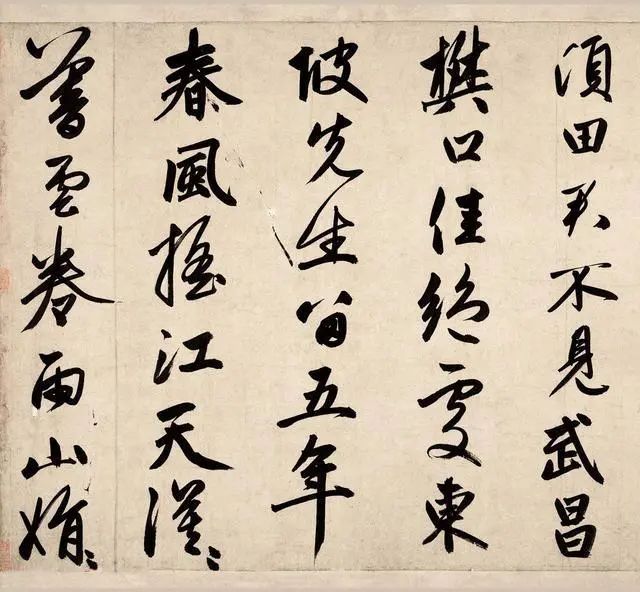 頃田君不見武昌
樊口佳絕處東
坡先生留五年
春風搖江天漠〻
暮雲卷雨山娟〻